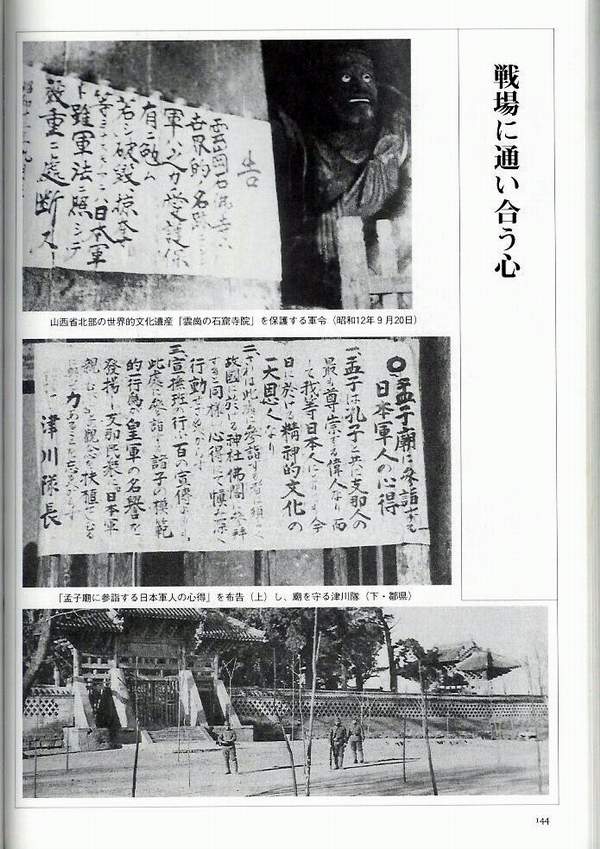 戦場に通い合う心
告
雲岡石佛寺ハ
世界的名跡ニシテ
軍ハ之カ愛護保
存ニ勉ム
若シ破毀、掠奪
等
日本軍
ト雖軍法ニ照シテ
厳重ニ處断ス
山西省北部の世界的文化遺産「雲崗の石窟寺院」を保護する軍令（昭和12年9月20日）
〇孟子廟に参詣する
日本軍人の心得
一、孟子は孔子と共に支那人の
最も尊崇する偉人なり而
して我等日本人にとりても今
日に於ける精神的文化の
一大恩人なり
二、されは此廟に参詣する者は須らく
故國に於る神社佛閣に参拜
すると同様の心得にて慎み深く
行動すべきなり
三、宣撫班の行ふ百の宣傳よりも
此處に参詣する諸子の模範
的行爲が皇軍の名譽を
發揚し支那民衆に日本軍
津川隊長
「孟子廟に参詣する日本軍人の心得」を布告（上）し、廟を守る津川隊（下・鄒県）
144